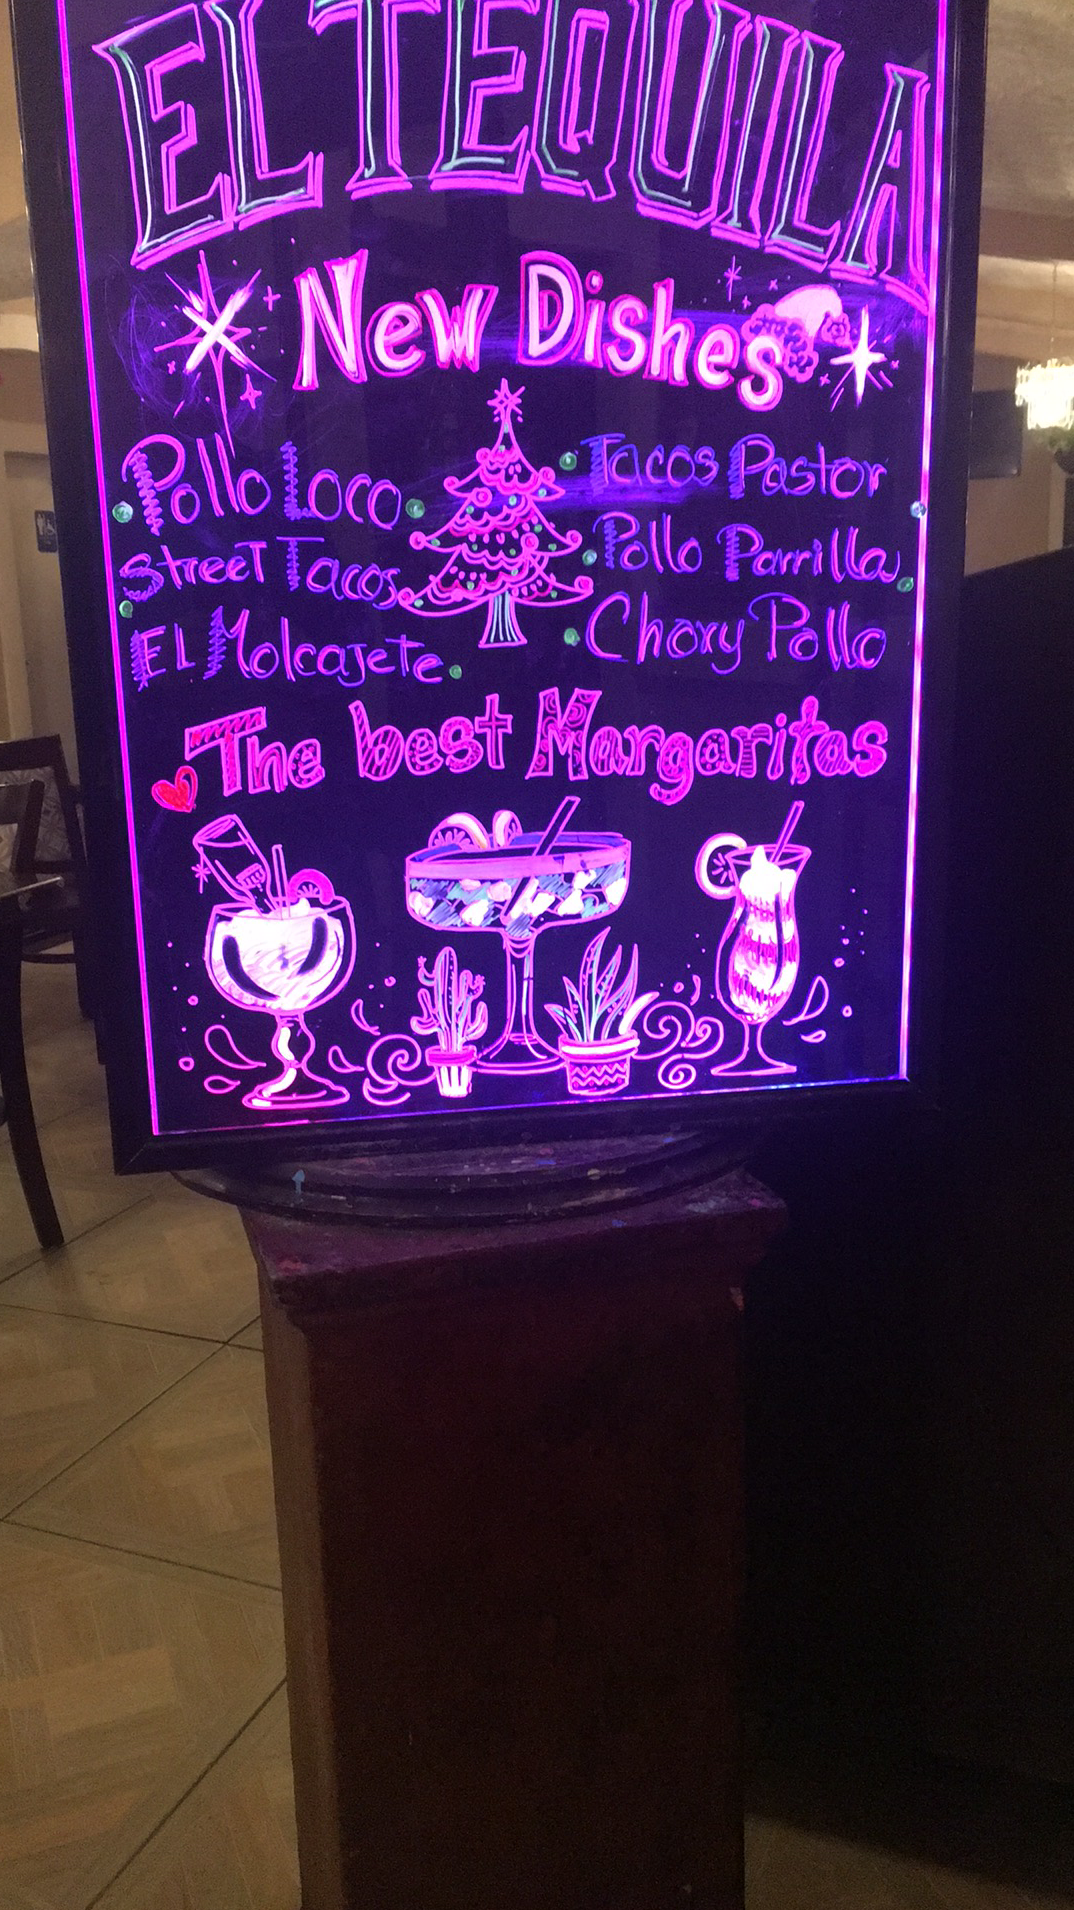 EL TEQUILA
New Dishes
Pollo Loco
Street Tacos
EL Molcajete
Tacos Pastor
Pollo Parrilla
Chory Pollo
The best Margaritas